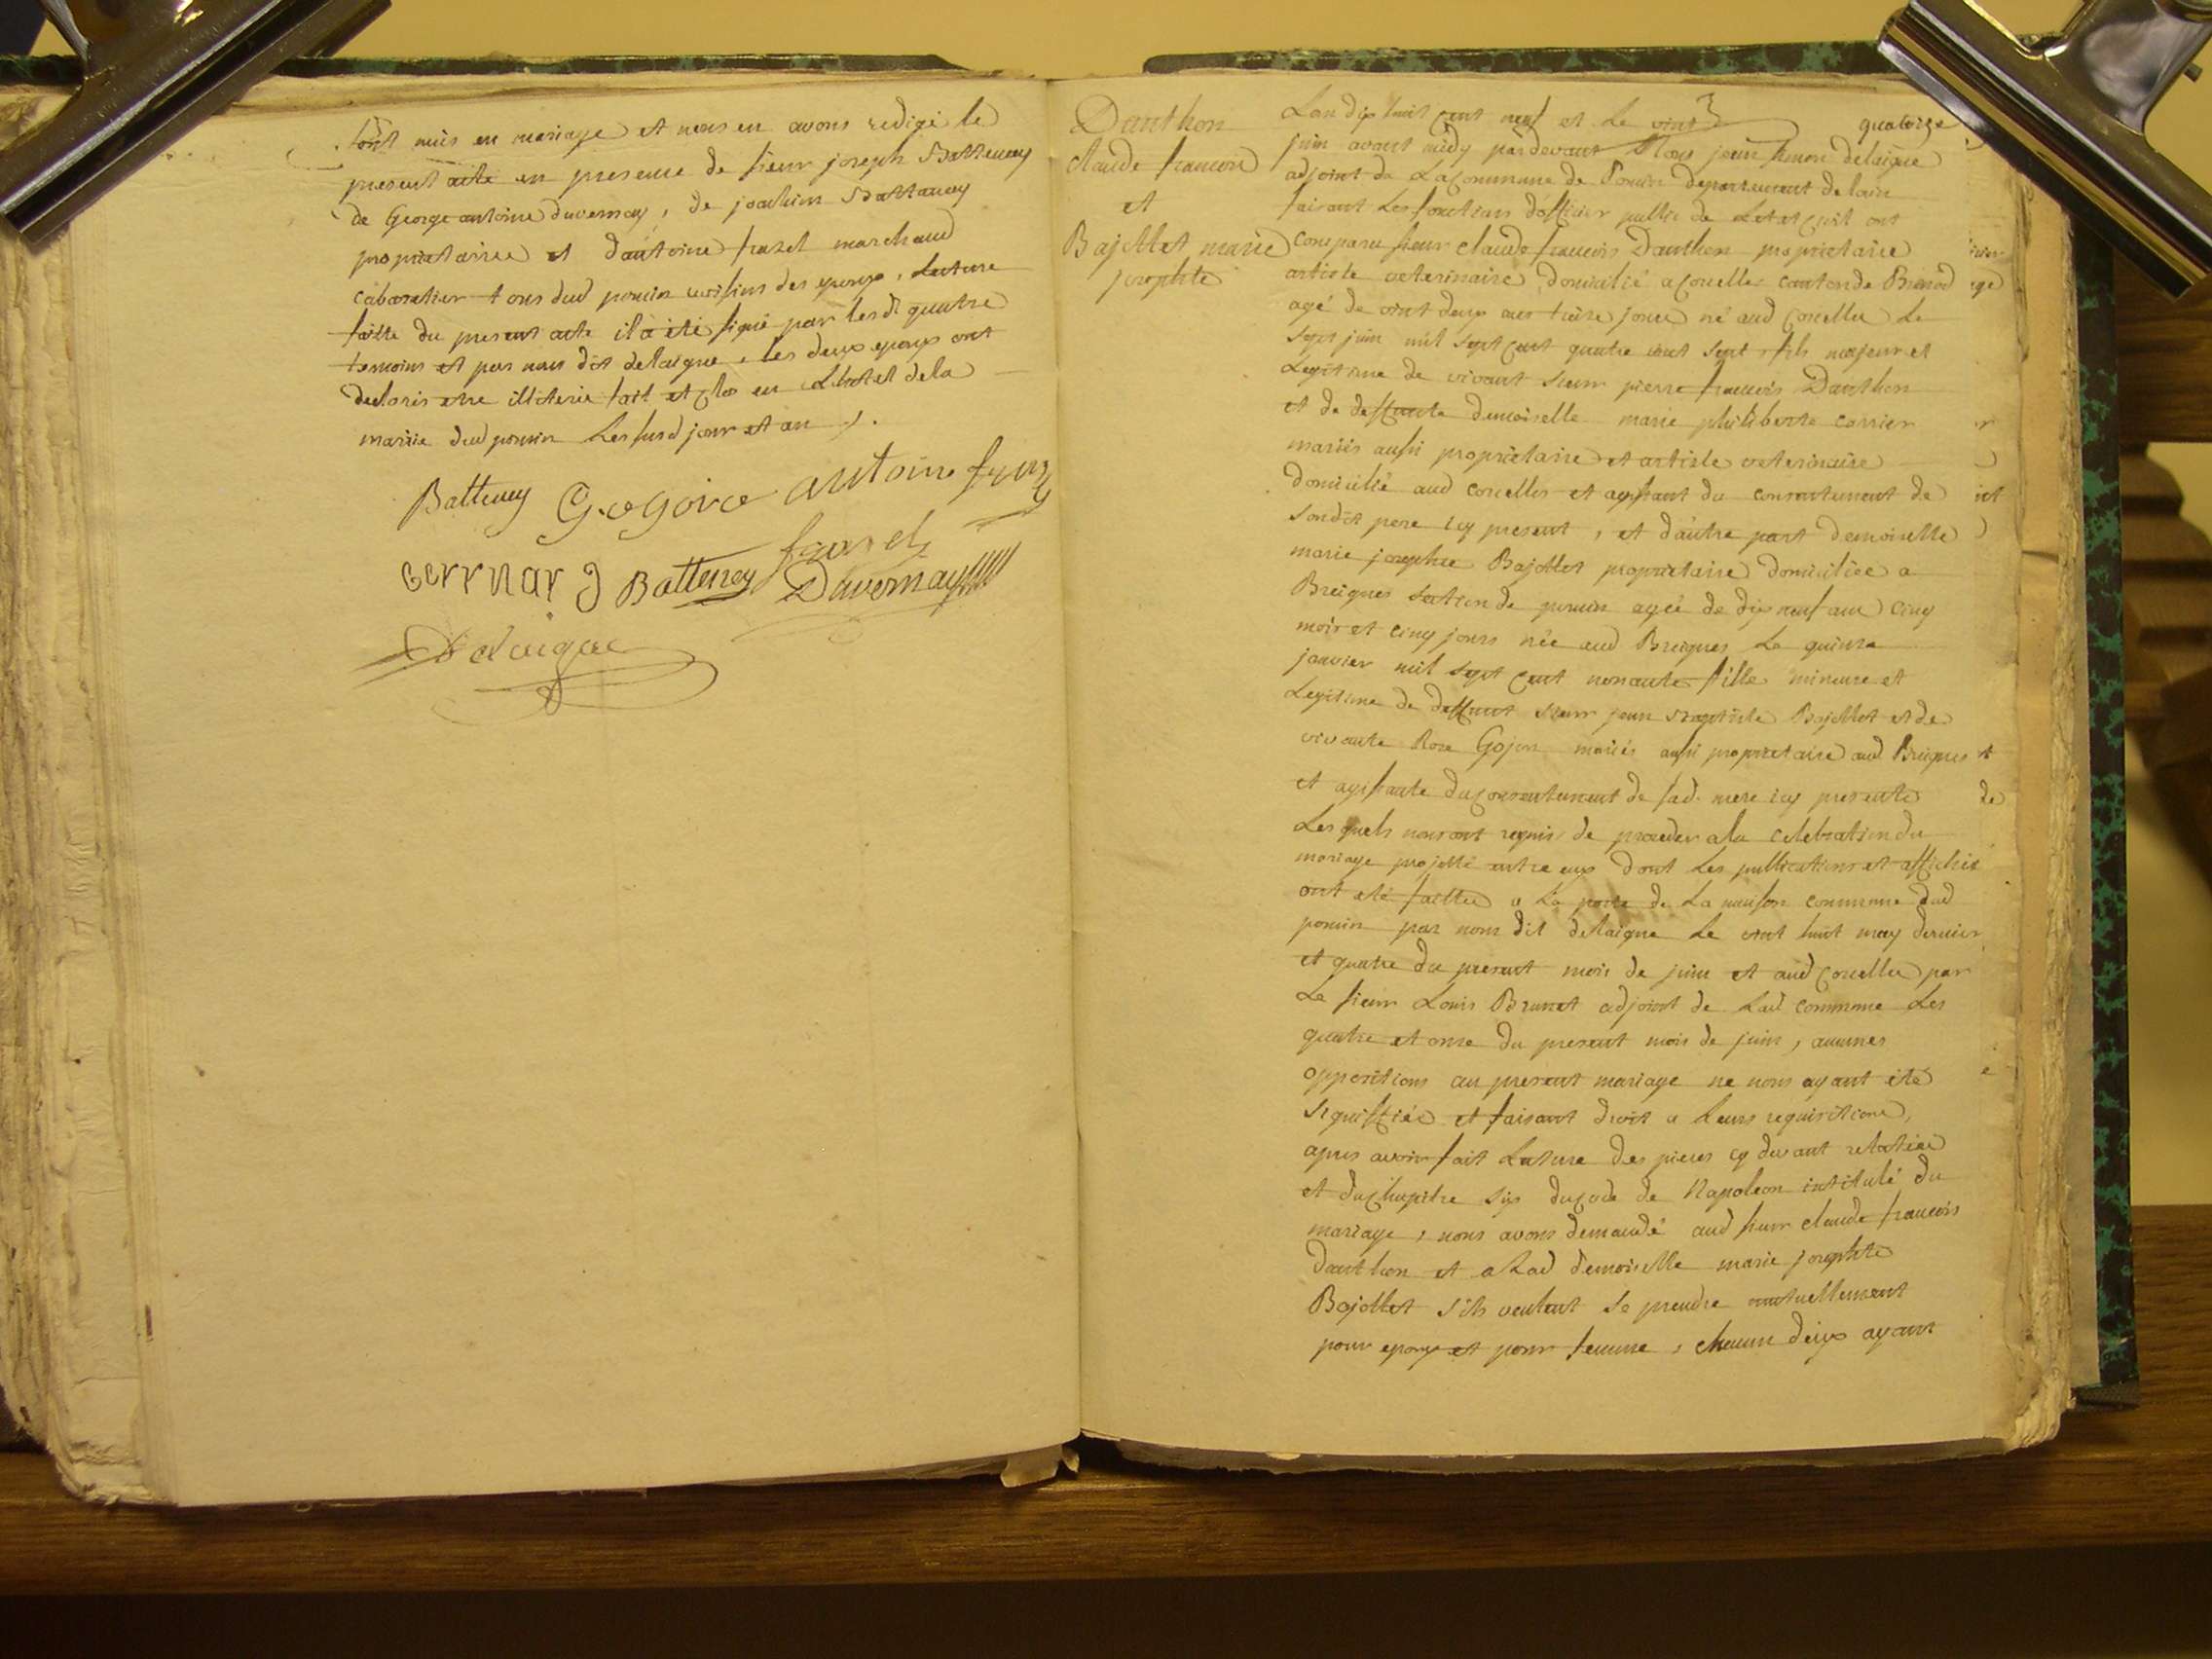 sont unis en mariage et nous en avons redigé le
present acte en presence de sieur joseph Battenay
de George antoine duvernay, de joachim Battaney
proprietaires et dantoine frazel marchand
cabaretier tous dud poncin voisins des epoux, Lecture
faitte du present acte il a été signé par lesdt quatre
temoins et par nous dit delaigue, les deux epoux ont
declaris etre illiteris fait et clos en Lhotel dela
mairie dud poncin Les susd jour et an ./.
Batteney antoine
Battenay Duvernay
Delaigue
Danthon
claude francois
et
Bajollet marie
josephte
quatorze
Lan dix huit cent neuf et Le vint
juin avant midy pardevant Nous jean simon delaigue
adjoint de La commune de Poncin departement de lain
faisant Les fonctions dofficier public de Letat civil ont
comparu sieur claude francois Danthon proprietaire
artiste veterinaire domicilié a Corcelles canton de Brenod
agé de vint deux ans treise jours né aud Corcelles Le
sept juin mil sept cent quatre vint sept, fils majeur et
Legitime de vivant sieur pierre francois Danthon
et de deffunte demoiselle marie philiberte carrier
mariés aussi proprietaire et artiste veterinaire
domicilié aud corcelles et agissant du consentement de
sondit pere icy present, et dautre part demoiselle
marie josephte Bajollet proprietaire domiciliée a
Breignes section de poncin agée de dix neuf ans cinq
mois et cinq jours née aud Breignes Le quinse
janvier mil sept cent nonante fille mineure et
Legitime de deffunt sieur jean Baptiste Bajollet et de
vivante Rose Gojon mariés aussi proprietaire aud Breignes
et agissante du consentement de sad. mere icy presente
Les quels nous ont requis de proceder a la celebration du
mariage projetté entre eux dont Les publications et affiches
ont eté faittes a La porte de La maison commune dud
poncin par nous dit delaigue Le vint huit may dernier
et quatre du present mois de juin et aud Corcelles par
Le sieur Louis Brunet adjoint de Lad commune Les
quatre et onse du present mois de juin, aucunes
oppositions au present mariage ne nous ayant été
signiffiées et faisant droit a Leurs requisitions,
apres avoir fait Lecture des pieces cy devant relatées
et du chapitre six du code de Napoleon intitulé du
mariage, nous avons demandé aud sieur claude francois
Danthon et a Lad demoiselle marie josephte
Bajollet sils veulent se prendre mutuellement
pour epoux et pour femme, chacun deux ayant